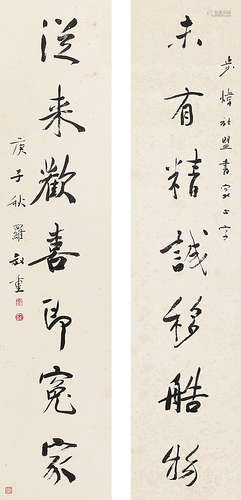 步煒社盟書家正字
未有精誠移艁物
從来歡喜即寃家
庚子秋羅叔重